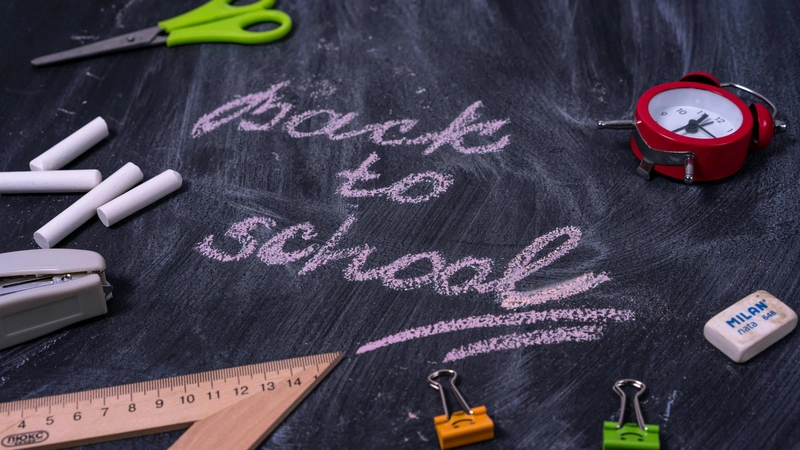 back
to
school
10 11 12
MILAN®
nata 648
4 5 6 7 8 9 10 11 12 13 14
ЛЮКС